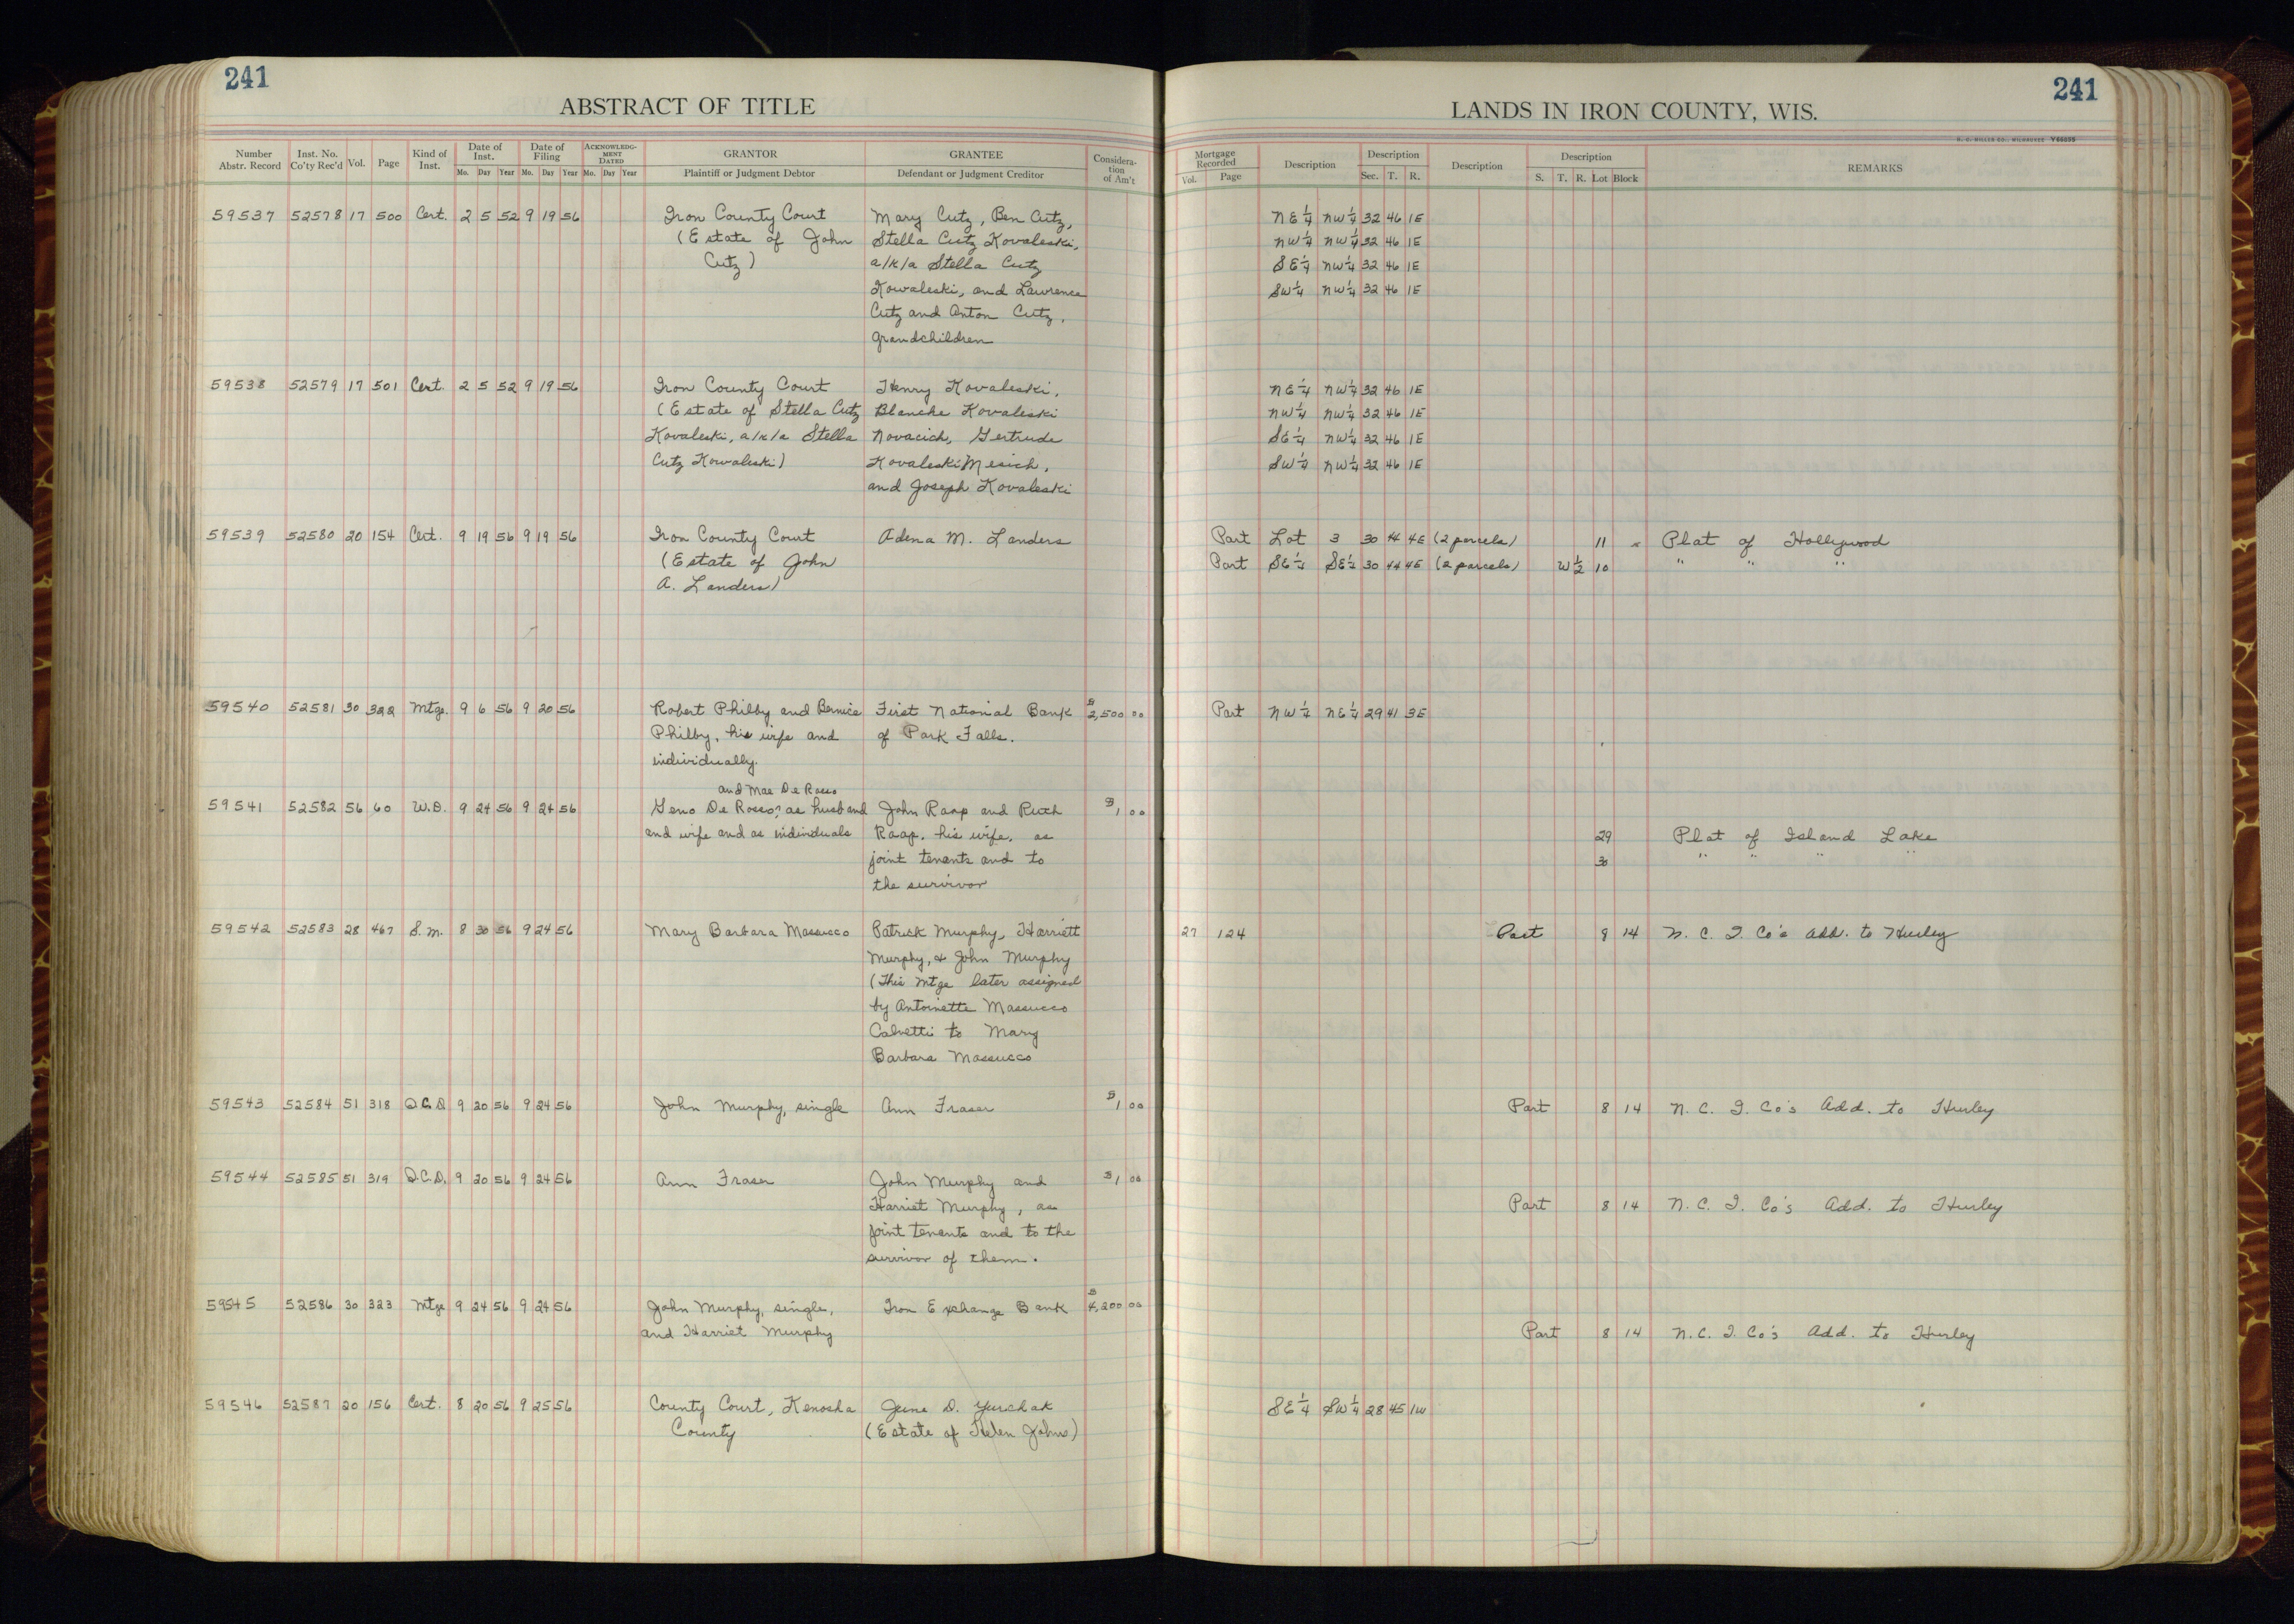 241
ABSTRACT OF TITLE
Number Abstr. Record Inst. No. Co'ty Rec'd Vol. Page Kind of Inst. Date of Inst. Mo. Day Year Date of Filing Mo. Day Year ACKNOWLEDG-MENT DATED Mo. Day Year GRANTOR Plaintiff or Judgment Debtor GRANTEE Defendant or Judgment Creditor Considera-tion of Am't
59537 52578 17 500 Cert. 2 5 52 9 19 56 Iron County Court Mary Cutz, Ben Cutz,
(Estate of John Stella Cutz Kovaleski,
Cutz) a/k/a Stella Cutz
Kowaleski, and Lawrence
Cutz and Anton Cutz,
grandchildren
59538 52579 17 501 Cert. 2 5 52 9 19 56 Iron County Court Henry Kovaleski,
(Estate of Stella Cutz Blanche Kovaleski
Kovaleski, a/k/a Stella Novacich, Gertrude
Cutz Kowaleski) Kovaleski Mesich,
and Joseph Kovaleski
59539 52580 20 154 Cert. 9 19 56 9 19 56 Iron County Court Adena M. Landers
(Estate of John
A. Landers)
59540 52581 30 322 Mtge. 9 6 56 9 20 56 Robert Philby and Bernice First National Bank $2,500 00
Philby, his wife and of Park Falls.
individually.
and Mae De Rosso
59541 52582 56 60 W.D. 9 24 56 9 24 56 Geno De Rosso, as husband John Raap and Ruth $1 00
and wife and as individuals Raap, his wife, as
joint tenants and to
the survivor
59542 52583 28 467 S.M. 8 30 56 9 24 56 Mary Barbara Massucco Patrick Murphy, Harriett
Murphy, & John Murphy
(This Mtge later assigned
by Antoinette Massucco
Calvetti to Mary
Barbara Massucco
59543 52584 51 318 Q.C.D. 9 20 56 9 24 56 John Murphy, single Ann Fraser $1 00
59544 52585 51 319 Q.C.D. 9 20 56 9 24 56 Ann Fraser John Murphy and $1 00
Harriet Murphy, as
joint tenants and to the
survivor of them.
59545 52586 30 323 Mtge 9 24 56 9 24 56 John Murphy, single, Iron Exchange Bank $4,200 00
and Harriet Murphy
59546 52587 20 156 Cert. 8 20 56 9 25 56 County Court, Kenosha June D. Yurchak
County (Estate of Helen Johns)
241
LANDS IN IRON COUNTY, WIS.
H. C. MILLER CO., MILWAUKEE V66055
Mortgage Recorded Vol. Page Description Description Sec. T. R. Description Description S. T. R. Lot Block REMARKS
NE¼ NW¼ 32 46 1E
NW¼ NW¼ 32 46 1E
SE¼ NW¼ 32 46 1E
SW¼ NW¼ 32 46 1E
NE¼ NW¼ 32 46 1E
NW¼ NW¼ 32 46 1E
SE¼ NW¼ 32 46 1E
SW¼ NW¼ 32 46 1E
Part Lot 3 30 44 4E (2 parcels) 11 Plat of Hollywood
Part SE¼ SE¼ 30 44 4E (2 parcels) W½ 10 " " "
Part NW¼ NE¼ 29 41 3E
29 Plat of Island Lake
30 " " " "
27 124 Part 8 14 N. C. I. Co's Add. to Hurley
Part 8 14 N. C. I. Co's Add. to Hurley
Part 8 14 N. C. I. Co's Add. to Hurley
Part 8 14 N. C. I. Co's Add. to Hurley
SE¼ SW¼ 28 45 1W